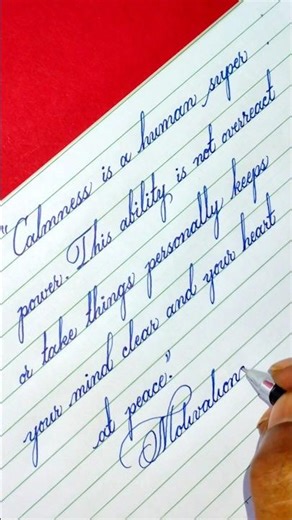 "Calmness is a human super
power. This ability is not overreact
or take things personally keeps
your mind clear and your heart
at peace."
Motivation